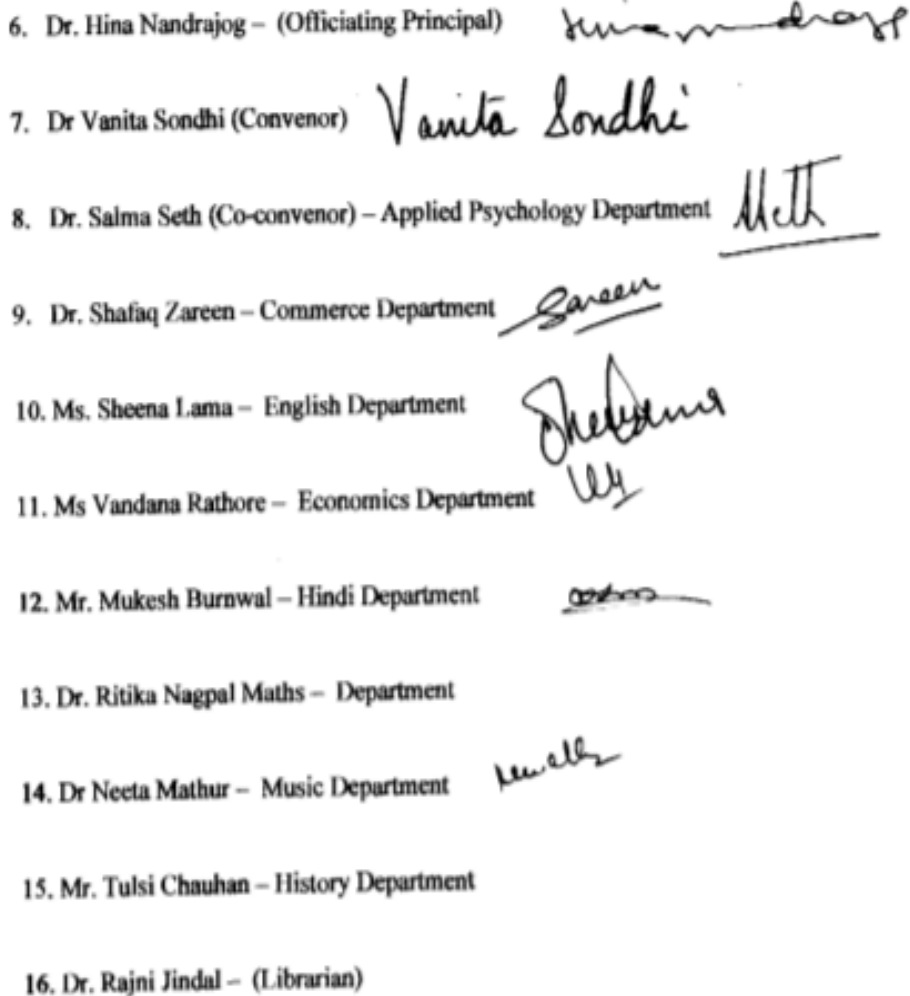 6. Dr. Hina Nandrajog – (Officiating Principal)
7. Dr Vanita Sondhi (Convenor) Vanita Sondhi
8. Dr. Salma Seth (Co-convenor) – Applied Psychology Department
9. Dr. Shafaq Zareen – Commerce Department Zareen
10. Ms. Sheena Lama – English Department
11. Ms Vandana Rathore – Economics Department
12. Mr. Mukesh Burnwal – Hindi Department
13. Dr. Ritika Nagpal Maths – Department
14. Dr Neeta Mathur – Music Department
15. Mr. Tulsi Chauhan – History Department
16. Dr. Rajni Jindal – (Librarian)